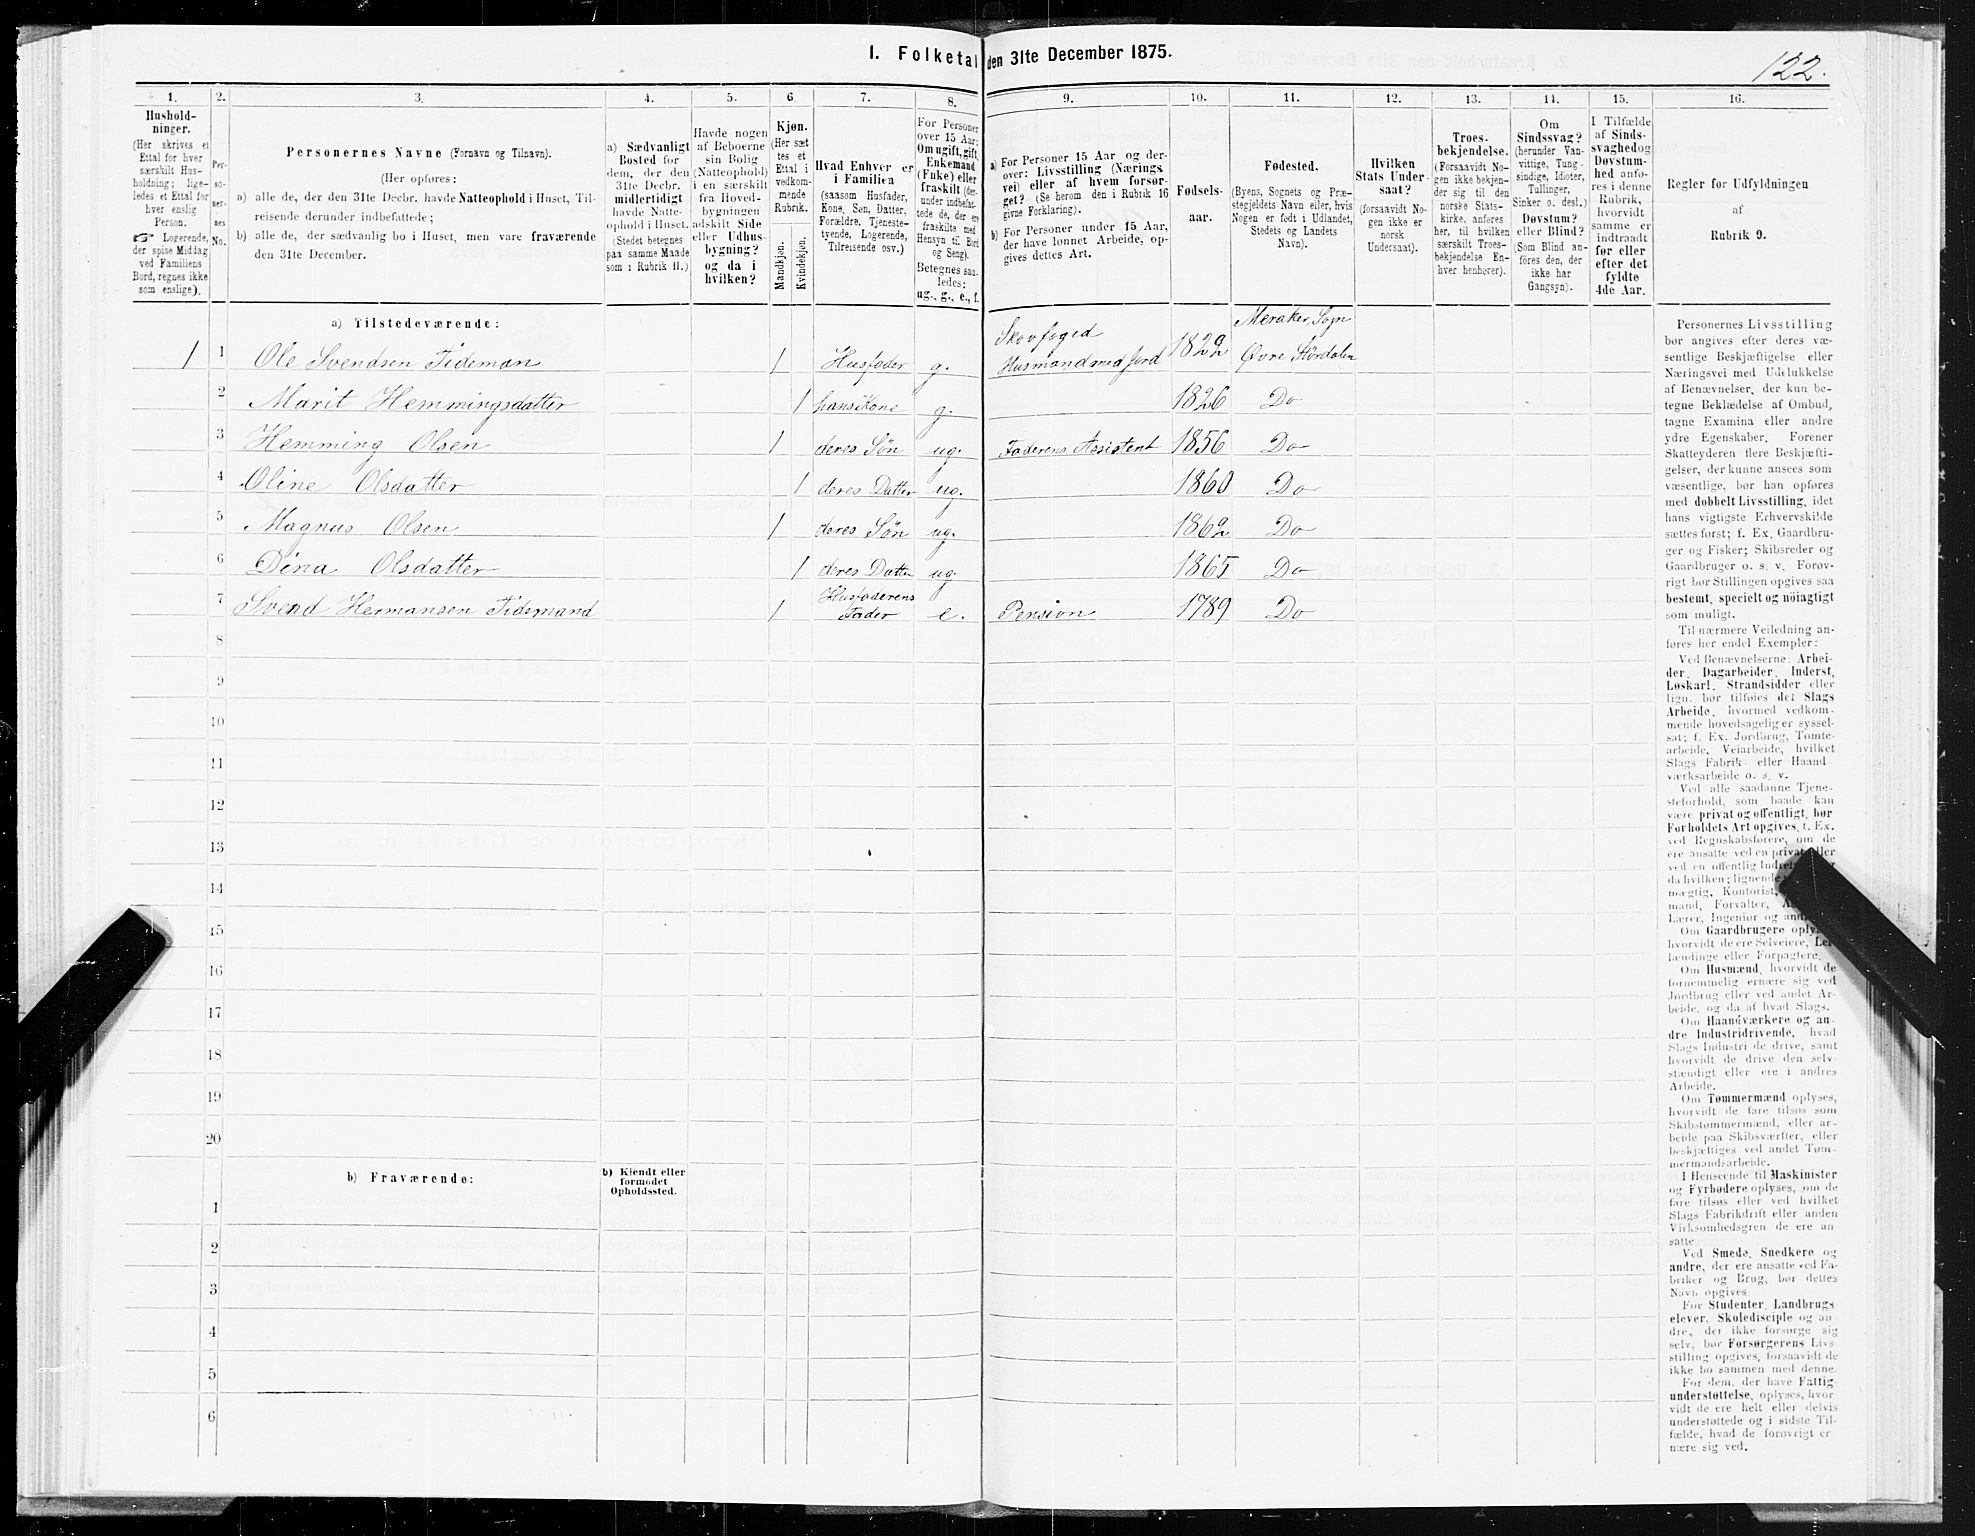 1. Folketal den 31te December 1875.
122.
1.
2.
3.
4.
5.
6
7.
8.
9.
10.
11.
12.
13.
14.
15.
16.
Hushold-
ninger.
(Her skrives et
Ettal for hver
særskilt Hus-
holdning; lige-
ledes et Ettal for
hver enslig
Person.
☞ Logerende,
der spise Middag
ved Familiens
Bord, regnes ikke
som enslige).
Per-
so-
ner-
nes
No.
Personernes Navne (Fornavn og Tilnavn).
(Her opføres:
a) alle de, der den 31te Decbr. havde Natteophold i Huset, Til-
reisende derunder indbefattede;
b) alle de, der sædvanlig bo i Huset, men vare fraværende
den 31te December.
a) Sædvanligt
Bosted for
dem, der den
31te Decbr.
midlertidigt
havde Natte-
ophold i Huset.
(Stedet betegnes
paa samme Maade
som i Rubrik 11.)
Havde nogen
af Beboerne
sin Bolig
(Natteophold)
i en særskilt
fra Hoved-
bygningen
adskilt Side
eller Udhus-
bygning?
og da i
hvilken?
Kjøn.
(Her sæt
tes et
Ettal i
vedkom-
mende
Rubrik.
Mandkjøn.
Kvindekjøn.
Hvad Enhver er
i Familien
(saasom Husfader,
Kone, Søn, Datter,
Forældre, Tjeneste-
tyende, Logerende,
Tilreisende osv.)
For Personer
over 15 Aar:
Om ugift, gift,
Enkemand
(Enke) eller
fraskilt (der-
under indbefat-
tede de, der ere
fraskilte med
Hensyn til Bord
og Seng).
Betegnes saa-
ledes:
ug., g., e., f.
a) For Personer 15 Aar og der-
over: Livsstilling (Nærings-
vei) eller af hvem forsør-
get? (Se herom den i Rubrik 16
givne Forklaring).
b) For Personer under 15 Aar,
der have lønnet Arbeide, op-
gives dettes Art.
Fødsels-
aar.
Fødested.
(Byens, Sognets og Præ-
stegjeldets Navn eller, hvis
Nogen er født i Udlandet,
Stedets og Landets
Navn).
Hvilken
Stats Under-
saat?
(forsaavidt No-
gen ikke er
norsk
Undersaat).
Troes-
bekjendelse.
(Forsaavidt No-
gen ikke bekjen-
der sig til den
norske Stats-
kirke, anføres
her, til hvilken
særskilt Troes-
bekjendelse En-
hver henhører).
Om
Sindssvag?
(herunder Van-
vittige, Tung-
sindige, Idioter,
Tullinger,
Sinker o. desl.)
Døvstum?
eller Blind?
(Som Blind an-
føres den, der
ikke har
Gangsyn).
I Tilfælde
af Sinds-
svaghed og
Døvstum-
hed anfø-
res i denne
Rubrik,
hvorvidt
samme er
indtraadt
før eller
efter det
fyldte
4de Aar.
Regler for Udfyldningen
af
Rubrik 9.
a) Tilstedeværende:
1 1 Ole Svendsen Tideman 1 Husfader g. Skovfoged Husmand med Jord 1822 Meraker, Sogn Øvre Størdalen
2 Marit Hemmingsdatter 1 hans Kone g. 1826 Do
3 Hemming Olsen 1 deres Søn ug. Faderens Assistent 1856 Do
4 Oline Olsdatter 1 deres Datter ug. 1860 Do
5 Magnus Olsen 1 deres Søn ug. 1862 Do
6 Dina Olsdatter 1 deres Datter ug. 1865 Do
7 Svend Hermansen Tidemand 1 Husfaderens Fader e. Pension 1789 Do
8
9
10
11
12
13
14
15
16
17
18
19
20
b) Fraværende:
b) Kjendt eller
formodet
Opholdssted.
1
2
3
4
5
6
Personernes Livsstilling
bør angives efter deres væ-
sentlige Beskjæftigelse eller
Næringsvei med Udelukkelse
af Benævnelser, der kun be-
tegne Beklædelse af Ombud,
tagne Examina eller andre
ydre Egenskaber. Forener
Skatteyderen flere Beskjæfti-
gelser, der kunne ansees som
væsentlige, bør han opføres
med dobbelt Livsstilling, idet
hans vigtigste Erhvervskilde
sættes først; f. Ex. Gaardbru-
ger og Fisker; Skibsreder og
Gaardbruger o. s. v. Forøv-
rigt bør Stillingen opgives saa
bestemt, specielt og nöiagtigt
som muligt.
Til nærmere Veiledning an-
føres her endel Exempler:
Ved Benævnelserne: Arbei-
der, Dagarbeider, Inderst,
Løskarl, Strandsidder eller
lign. bør tilføies det Slags
Arbeide, hvormed vedkom-
mende hovedsagelig er syssel-
sat; f. Ex. Jordbrug, Tomte-
arbeide, Veiarbeide, hvilket
Slags Fabrik- eller Haand-
værksarbeide o. s. v.
Ved alle saadanne Tjene-
steforhold, som baade kan
være privat og offentligt, bør
Forholdets Art opgives, f. Ex.
ved Regnskabsførere, om de
ere ansatte ved en privat eller
ved en offentlig
da hvilken; lignende
mægtig, Kontorist,
mand, Forvalter,
Lærer, Ingeniør og
Om Gaardbrugere
hvorvidt de ere Selveiere,
lændinge eller Forpagtere.
Om Husmænd, hvorvidt de
fornemmelig ernære sig ved
Jordbrug eller ved andet Ar-
beide, og da af hvad Slags.
Om Haandværkere og an-
dre Industridrivende, hvad
Slags Industri de drive, samt
hvorvidt de drive den selv-
stændigt eller ere i andres
Arbeide.
Om Tømmermænd oplyses,
hvorvidt de fare tilsøs som
Skibstømmermænd, eller ar-
beide paa Skibsværfter, eller
beskjæftiges ved andet Tøm-
mermandsarbeide.
I Henseende til Maskinister
og Fyrbødere oplyses, om de
fare tilsøs eller ved hvilket
Slags Fabrikdrift eller anden
Virksomhedsgren de ere an-
satte.
Ved Smede, Snedkere og
andre, der ere ansatte ved Fa-
briker og Brug, bør dettes
Navn opgives.
For Studenter, Landbrugs-
elever, Skoledisciple og an-
dre, der ikke forsørge sig
selv, bør Forsørgerens Livs-
stilling opgives, forsaavidt de
ikke bo sammen med denne.
For dem, der have Fattig-
understøttelse, oplyses, hvor-
vidt de ere helt eller delvis
understøttede og i sidste Til-
fælde, hvad de forøvrigt er-
nære sig ved.